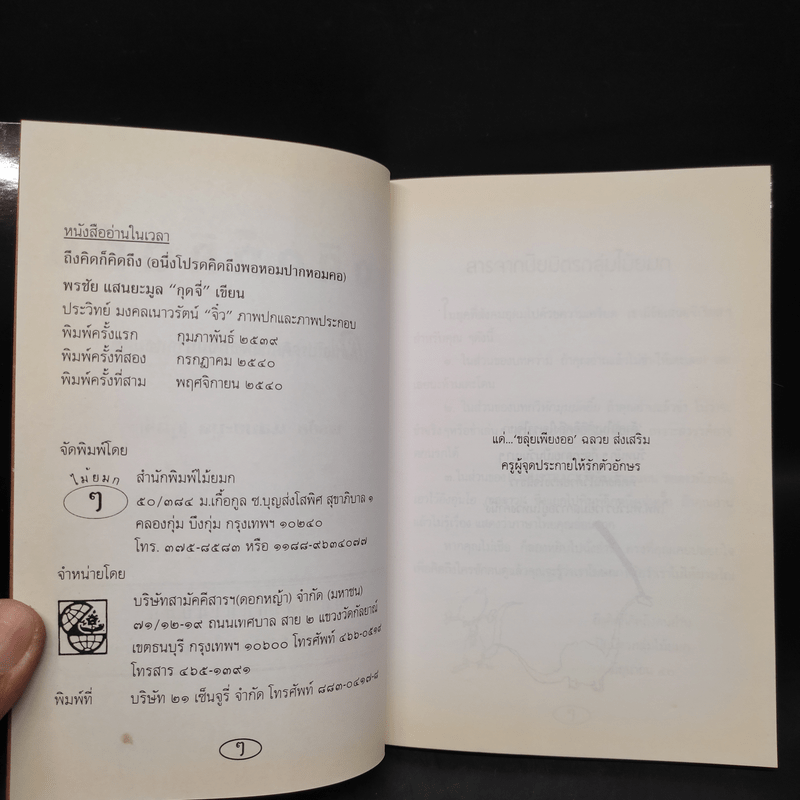 หนังสืออ่านในเวลา
ถึงคิดก็คิดถึง (อนึ่งโปรดคิดถึงพอหอมปากหอมคอ)
พรชัย แสนยะมูล "กุดจี่" เขียน
ประวิทย์ มงคลเนาวรัตน์ "จิ๋ว" ภาพปกและภาพประกอบ
พิมพ์ครั้งแรก กุมภาพันธ์ ๒๕๓๙
พิมพ์ครั้งที่สอง กรกฎาคม ๒๕๔๐
พิมพ์ครั้งที่สาม พฤศจิกายน ๒๕๔๐
จัดพิมพ์โดย
ไม้ยมก
ๆ
สำนักพิมพ์ไม้ยมก
๕๐/๓๘๔ ม.เกื้อกูล ซ.บุญส่งโสพิศ สุขาภิบาล ๑
คลองกุ่ม บึงกุ่ม กรุงเทพฯ ๑๐๒๔๐
โทร. ๓๗๕-๘๕๘๓ หรือ ๑๑๘๘-๙๖๓๔๐๗๗
จำหน่ายโดย
บริษัทสามัคคีสารฯ(ดอกหญ้า) จำกัด (มหาชน)
๗๑/๑๒-๑๙ ถนนเทศบาล สาย ๒ แขวงวัดกัลยาณ์
เขตธนบุรี กรุงเทพฯ ๑๐๖๐๐ โทรศัพท์ ๔๖๖-๐๕๑๙
โทรสาร ๔๖๕-๑๓๙๑
พิมพ์ที่ บริษัท ๒๑ เซ็นจูรี่ จำกัด โทรศัพท์ ๘๘๓-๐๔๑๙-๘
ๆ
แด่...'ขลุ่ยเพียงออ' ฉลวย ส่งเสริม
ครูผู้จุดประกายให้รักตัวอักษร